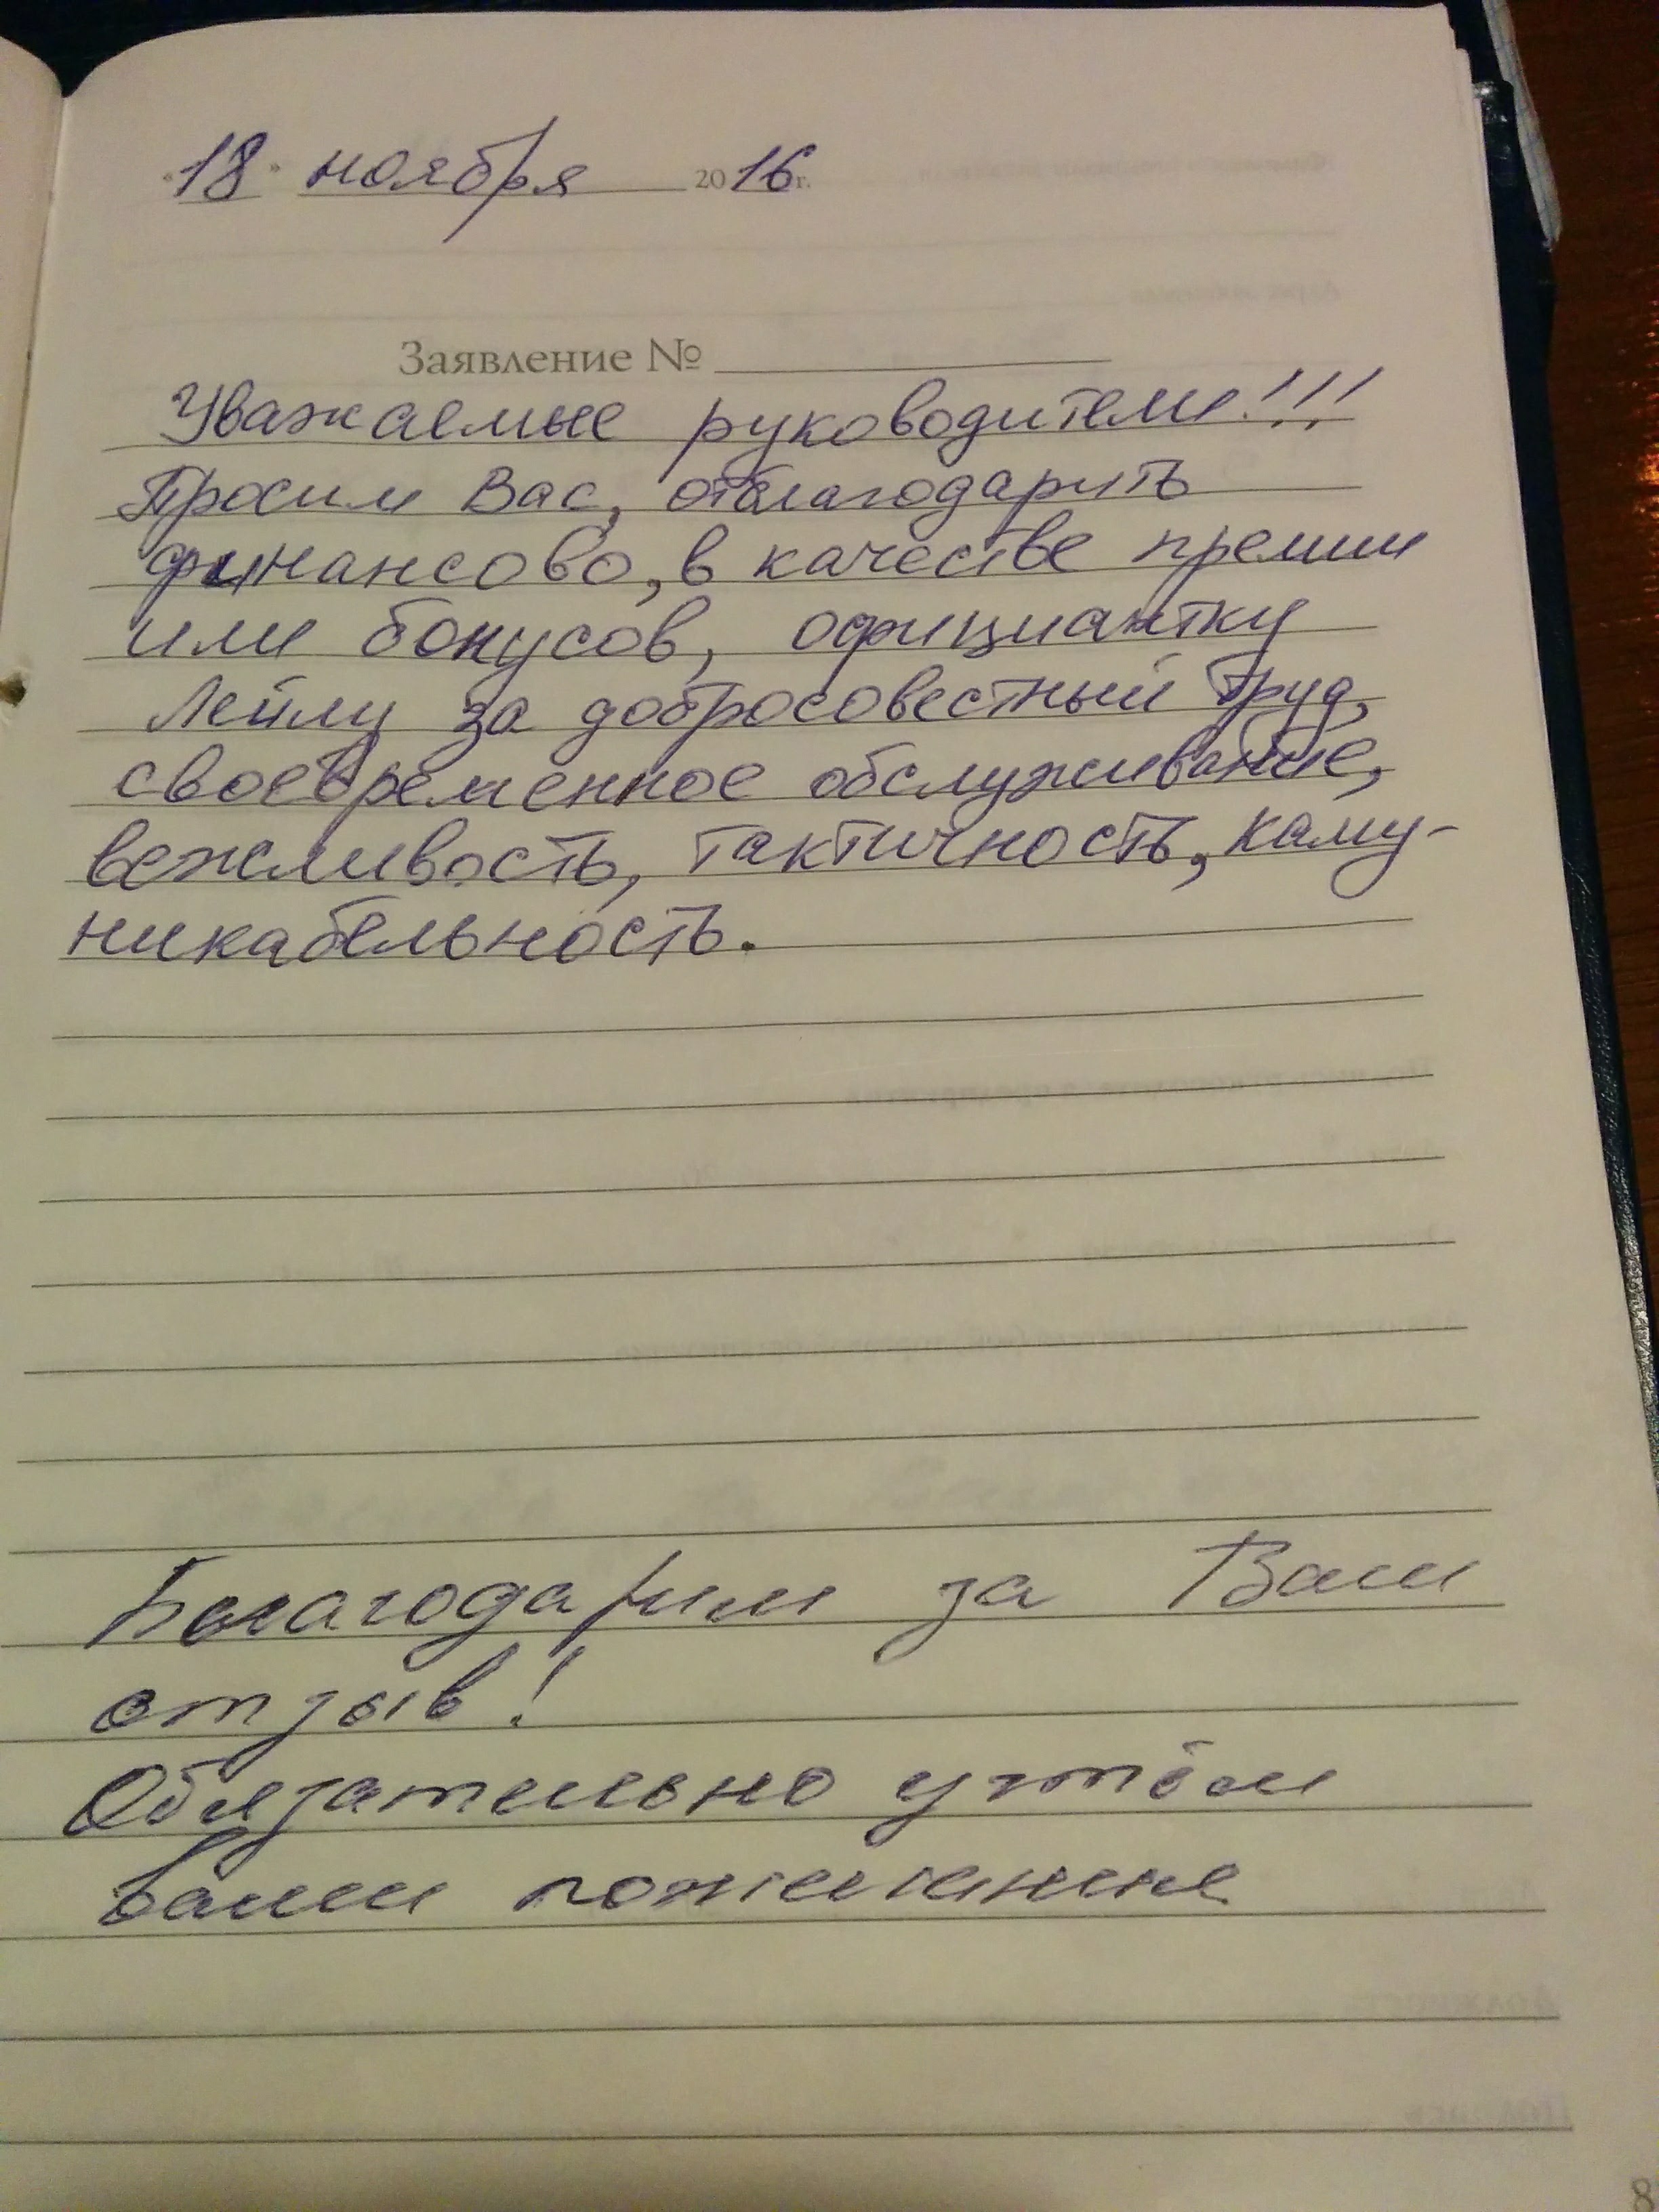 «18» ноября 2016 г.
Заявление №
Уважаемые руководители!!!
Просим Вас, отблагодарить
финансово, в качестве премии
или бонусов, официантку
Лейлу за добросовестный труд,
своевременное обслуживание,
вежливость, тактичность, каму-
никабельность.
Благодарим за Ваш
отзыв!
Обязательно учтём
ваши пожелания
8